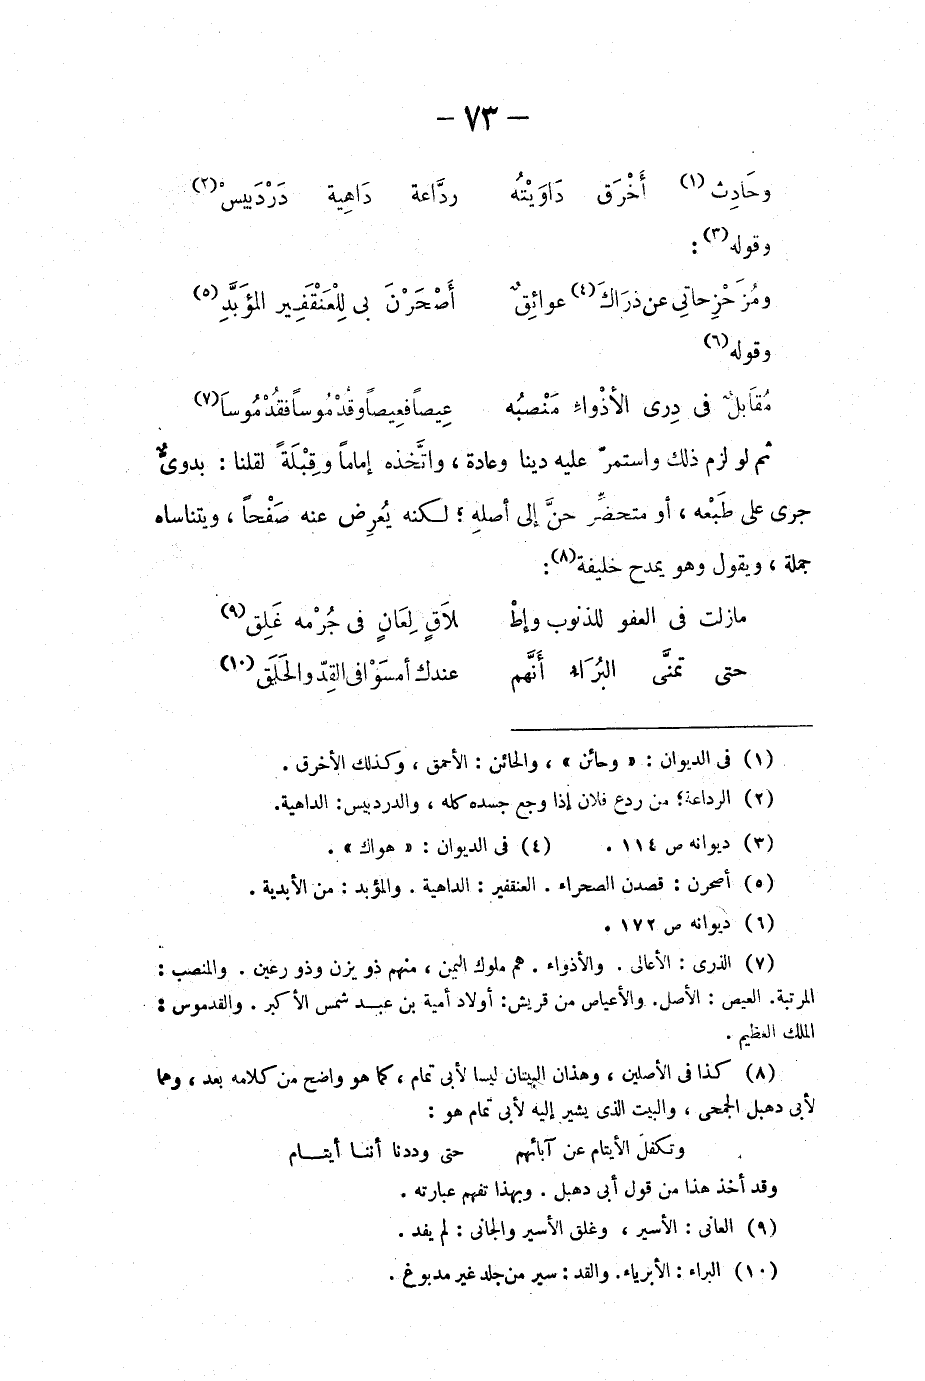 – ٧٣ –
وحَادِث (١) أَخْرَق دَاوَيْتُه ردَّاعة دَاهِية دَرْدَبِيسْ (٢)
وقوله (٣) :
ومُزَحْزِحاتِي عن ذرَاكَ (٤) عوائِقٌ أَصْحَرْنَ بى لِلْعَنْقَفِير المؤبَّدِ (٥)
وقوله (٦)
مُقَابلٌ فى ذِرى الأذْواءِ مَنْصبُه عِيصاً فعِيصاً وقُدْمُوساً فقُدْمُوسا (٧)
ثم لو لزم ذلك واستمرّ عليه دينا وعادة ، واتَّخذه إماماً وقِبْلَةً لقلنا : بدوىٌّ
جرى على طَبْعه ، أو متحضِّر حنَّ إلى أصلهِ ؛ لكنه يُعرِض عنه صَفْحاً ، ويتناساه
جملة ، ويقول وهو يمدح خليفة (٨) :
مازلت فى العفو للذنوب وإطْ لاَقٍ لِعَانٍ فى جُرْمه غَلِق (٩)
حتى تمنَّى البُرَاء أَنَّهم عندك أمسَوْا فى القِدّ والحَلَق (١٠)
(١) فى الديوان : « وحائن » ، والحائن : الأحمق ، وكذلك الأخرق .
(٢) الرداعة؛ من ردع فلان إذا وجع جسده كله ، والدردبيس : الداهية.
(٣) ديوانه ص ١١٤ . (٤) فى الديوان : « هواك » .
(٥) أصحرن : قصدن الصحراء . العنقفير : الداهية . والمؤبد : من الأبدية .
(٦) ديوانه ص ١٧٢ .
(٧) الذرى : الأعالى . والأذواء . هم ملوك اليمن ، منهم ذو يزن وذو رعين . والمنصب :
المرتبة. العيص : الأصل. والأعياص من قريش: أولاد أمية بن عبد شمس الأكبر . والقدموس :
الملك العظيم .
(٨) كذا فى الأصلين ، وهذان البيتان ليسا لأبى تمام ، كما هو واضح من كلامه بعد ، وهما
لأبى دهبل الجمحى ، والبيت الذى يشير إليه لأبى تمام هو :
وتكفلَ الأيتام عن آبائهم حتى وددنا أننا أيتام
وقد أخذ هذا من قول أبى دهبل . وبهذا تفهم عبارته .
(٩) العانى : الأسير ، وغلق الأسير والجانى : لم يفد .
(١٠) البراء : الأبرياء. والقد : سير من جلد غير مدبوغ .